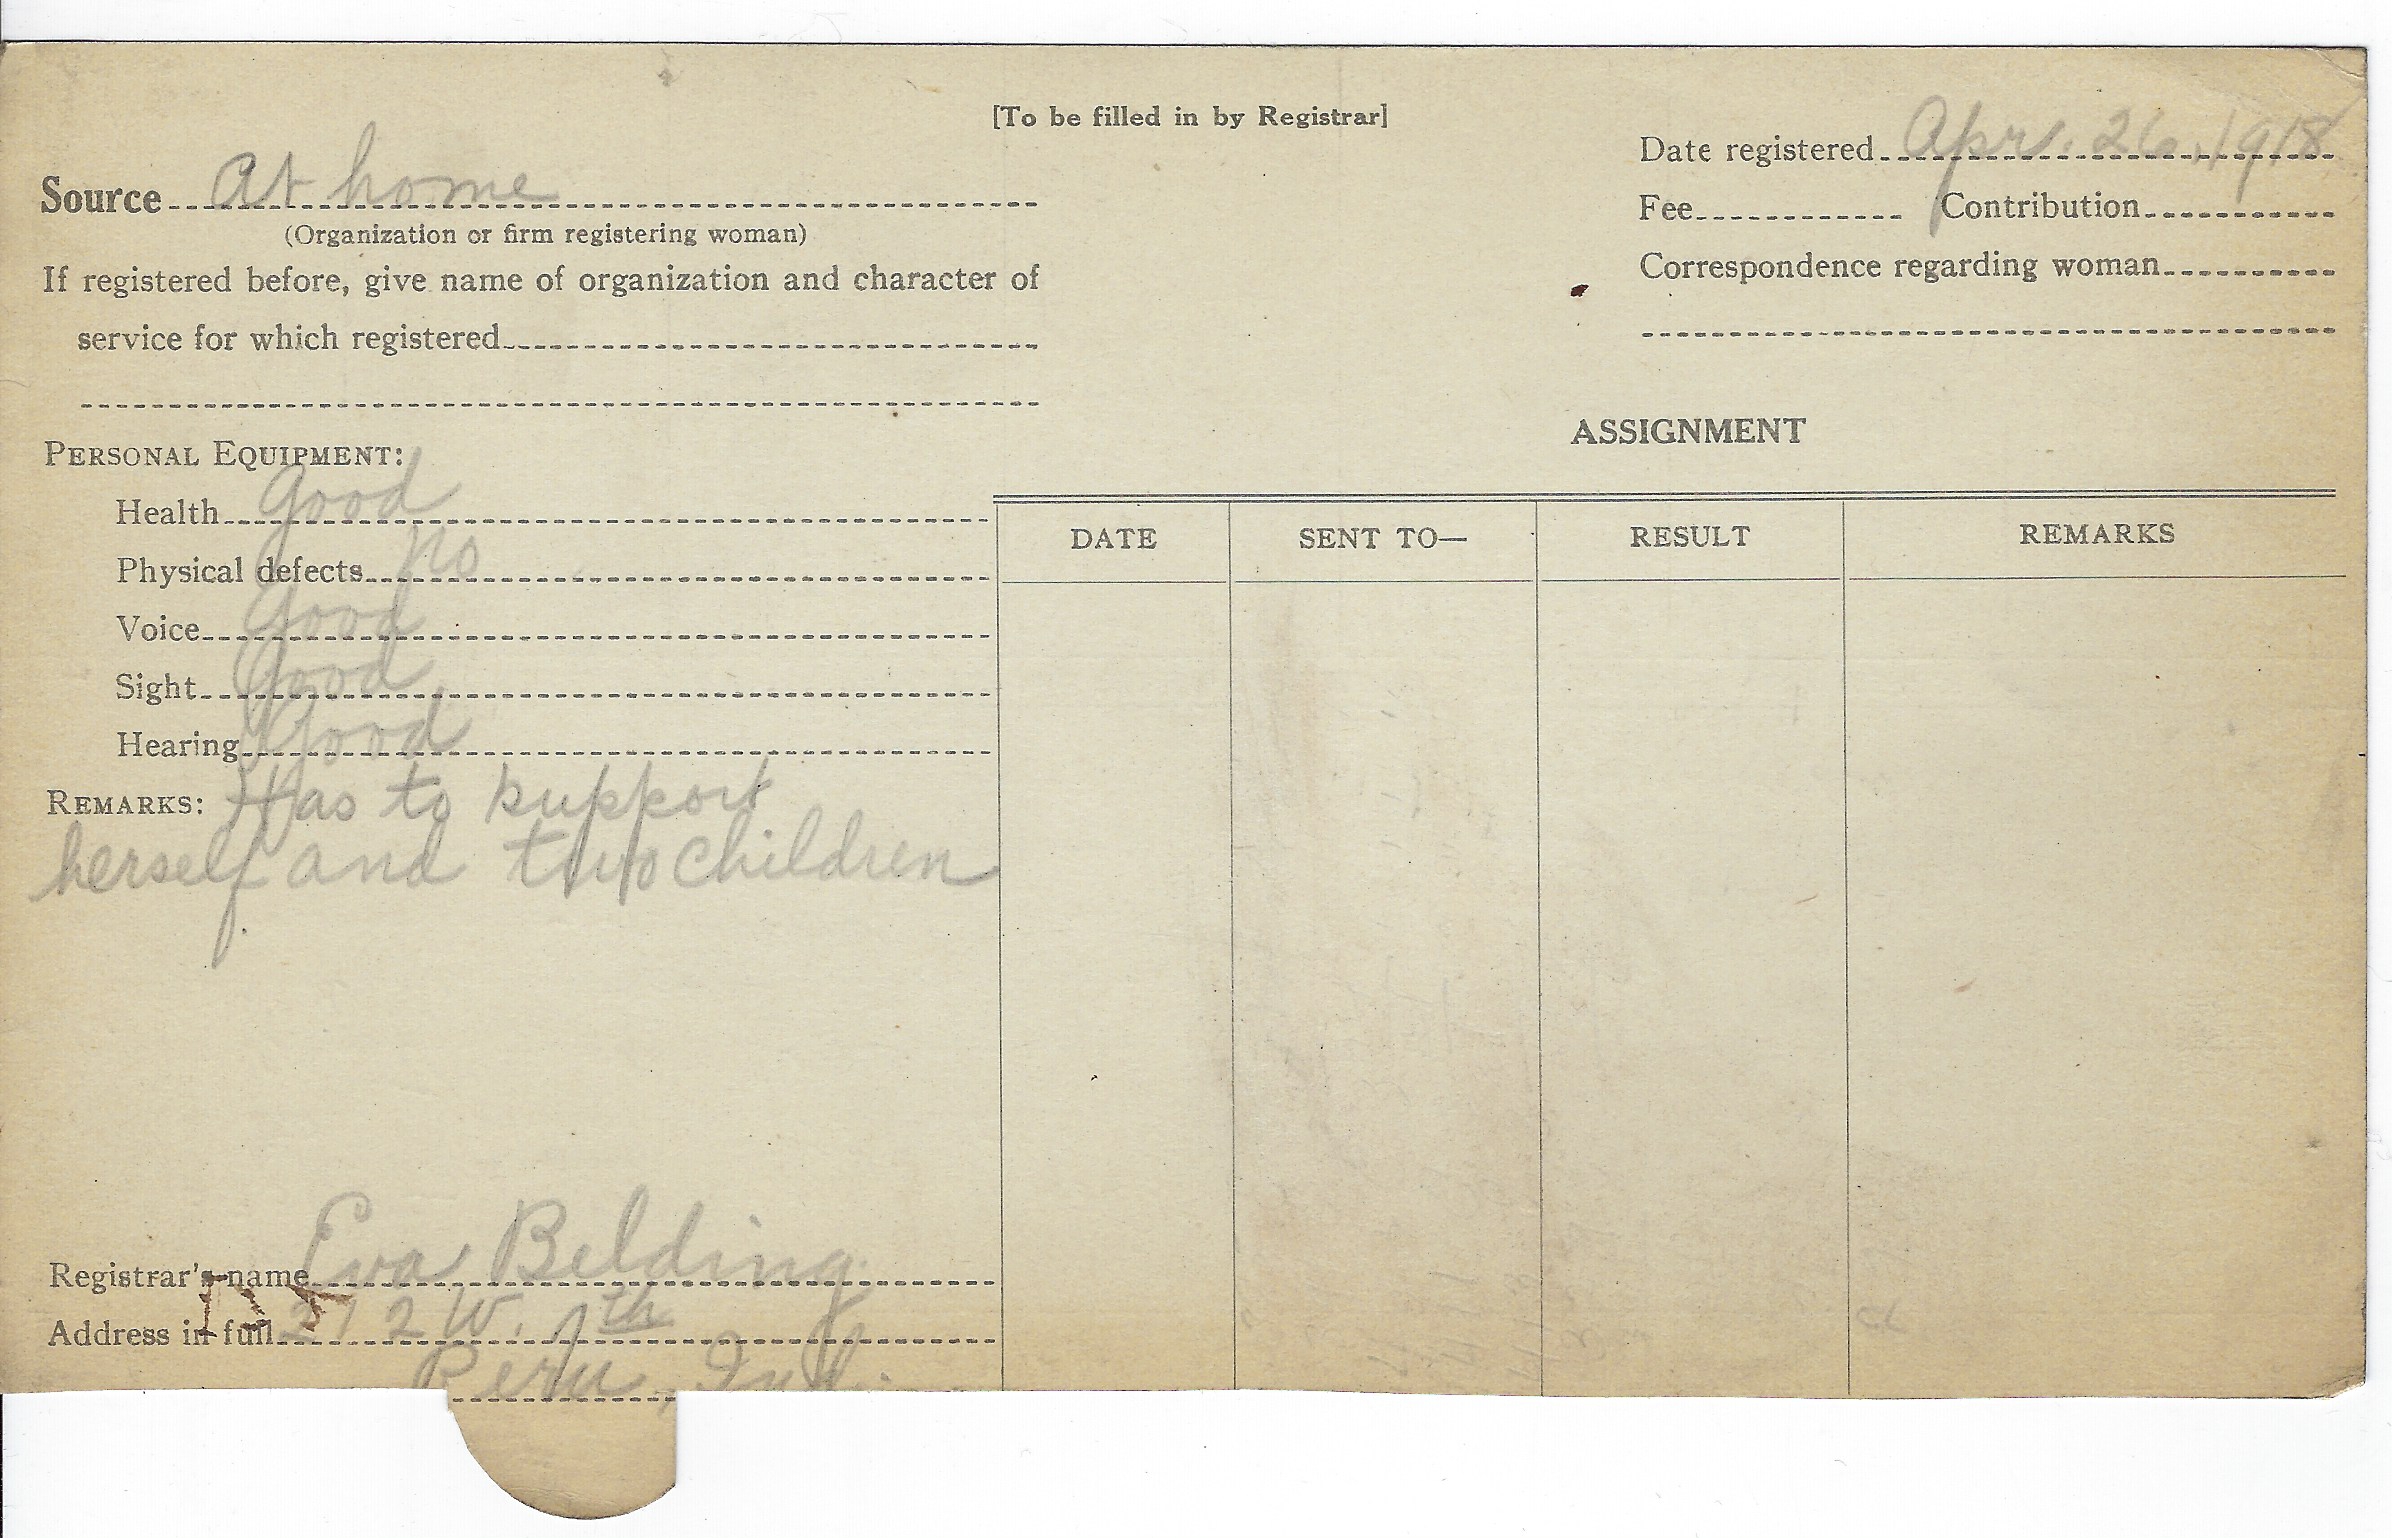 [To be filled in by Registrar]
Source At home
(Organization or firm registering woman)
If registered before, give name of organization and character of
service for which registered
Date registered Apr. 26, 1918
Fee Contribution
Correspondence regarding woman
PERSONAL EQUIPMENT:
Health Good
Physical defects no
Voice Good
Sight Good
Hearing Good
REMARKS: Has to support
herself and two children
Registrar's name Eva Belding
Address in full 212 W. th
Peru, Ind.
ASSIGNMENT
DATE SENT TO— RESULT REMARKS